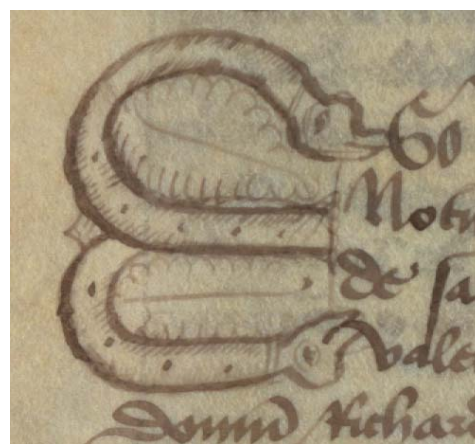 So
Not
de sa
vale
donn̄ Richar